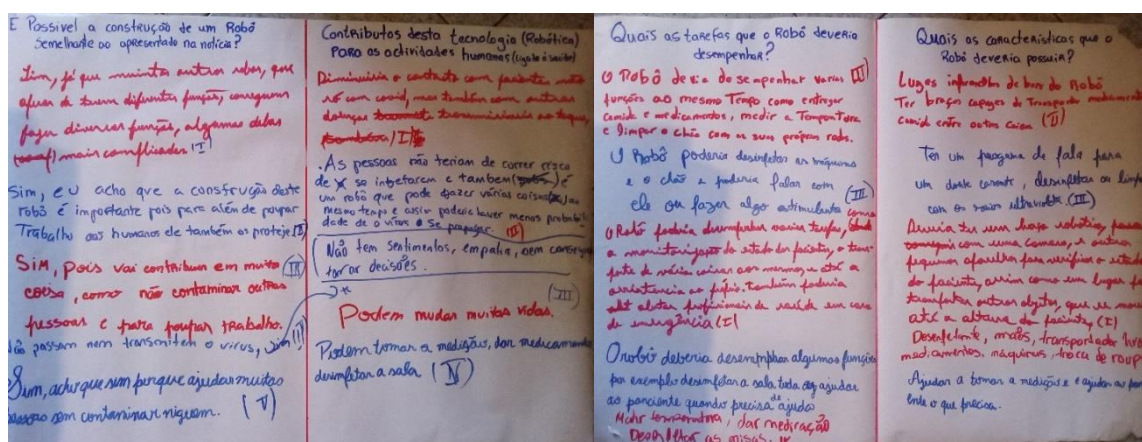 É Possivel a construção de um Robô
semelhante ao apresentado na notícia?
Sim, já que muintas outros robos, que
apesar de terem difrentes funções, conseguem
fazer diversas funções, algumas delas
mais complicadas (I)
Sim, eu acho que a construção deste
robô é importante pois para além de poupar
Trabalho aos humanos ele também os proteje (II)
Sim, pois vai contribuir em muita
coisa, como não contaminar outras
pessoas e para poupar trabalho.
não passam nem transmitem o virus,
Sim, acho que sim porque ajudam muitas
pessoas sem contaminar niguem. (V)
Contributos desta tecnologia (Robótica)
para as actividades humanas (ligado à saúde)
Diminuiria o contacto com paciente, não
só com covid, mas também com outras
doenças transmissiveis ao toque,
(I)
As pessoas não teriam de correr risco
de se infetarem e também é
um robô que pode fazer várias coisas ao
mesmo tempo e assim poderia haver menos probabili
dade de o vírus se propagar. (II)
Não tem sentimentos, empatia, nem consegue
tomar decisões.
(III)
Podem mudar muitas vidas.
Podem tomar a medição, dar medicamento
desinfetar a sala (IV)
Quais as tarefas que o Robô deveria
desempenhar?
O Robô devia desempenhar varias (II)
funções ao mesmo Tempo como entregar
comida e medicamentos, medir a Temperatura
e limpar o chão com as suas próprias rodas.
O Robô poderia desinfetar as máquinas
e o chão e poderia falar com
ele ou fazer algo estimulante (III)
O Robô poderia desempenhar varias tarefas, desde
a monitorização do estado do paciente, o trans-
porte de várias coisas ao mesmo, e até a
assistencia ao próprio. Também poderia
alertar profissionais de saúde em caso
de emergência (I)
O robô deberia desempenhar algumas funções
por exemplo desinfetar a sala toda ajudar
ao panciente quando precisa de ajuda
temperatura, dar medicação
Desenfetar as misas. IV
Quais as características que o
Robô deveria possuir?
Luzes infravermelhas de bairo do Robô
Ter braços capazes de Transportar medicamentos
comida entre outras coisas (II)
Ter um programa de fala para
um doente carente, desinfetar ou limpar
com os raios ultravioleta (III)
Deveria ter um braço robótico,
com uma camara, e outros
pequenos aparelhos para verificar o estado
do paciente, assim como um lugar para
transportar outros objetos, que se mova
até a altura do paciente, (I)
Desenfetante, mãos, transportador
medicamentos, maquinas, troca de roup
Ajudar a tomar a medição e ajudar ao paci
ente o que precisa.